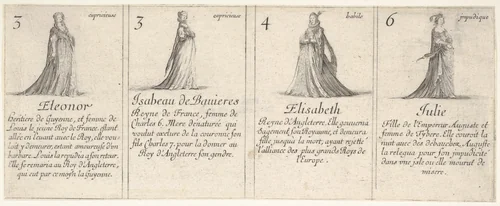 3 capricieuse
Eleonor
Heritiere de Guyenne, et femme de
Louis le jeune Roy de France, estant
allée en levant avec le Roy, elle vou-
lut y demeurer, estant amoureuse d'un
barbare. Louis la repudia a son retour.
Elle se remaria au Roy d'Angleterre,
qui eut par ce moyen la Guyenne.
3 capricieuse
Isabeau de Bavieres
Royne de France, femme de
Charles 6. Mere dénaturée qui
voulut exclure de la couronne son
fils Charles 7. pour la donner au
Roy d'Angleterre son gendre.
4 habile
Elisabeth
Royne d'Angleterre. Elle gouverna
sagement son Royaume, et demeura
fille jusqu'a la mort, ayant rejetté
l'alliance des plus grands Roys de
l'Europe.
6 impudique
Julie
Fille de l'Empereur Auguste et
femme de Tybere. Elle couroit la
nuit avec des debauchez. Auguste
la relegua pour son impudicité
dans une isle ou elle mourut de
misere.